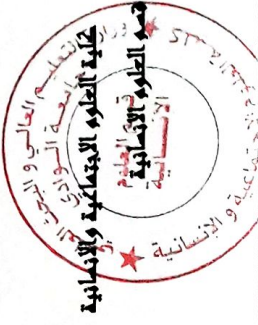 كلية العلوم الاجتماعية والإنسانية
قسم العلوم الإنسانية
التعليم العالي و البحث
الوادي
قسم العلوم
الإنسانية